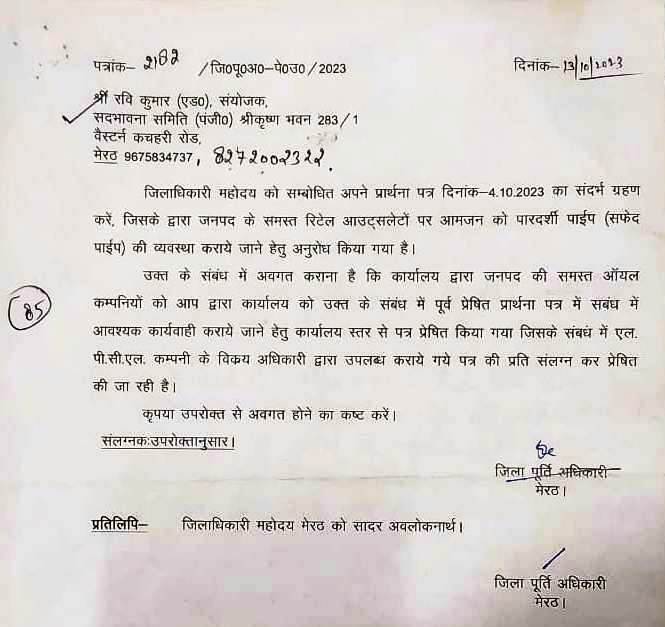 पत्रांक– 2182 /जि०पू०अ०–पे०उ०/2023 दिनांक– 13/10/2023
श्री रवि कुमार (एड०), संयोजक,
सदभावना समिति (पंजी०) श्रीकृष्ण भवन 283/1
वैस्टर्न कचहरी रोड,
मेरठ 9675834737, 8272002322.
जिलाधिकारी महोदय को सम्बोधित अपने प्रार्थना पत्र दिनांक–4.10.2023 का संदर्भ ग्रहण
करें, जिसके द्वारा जनपद के समस्त रिटेल आउट्सलेटों पर आमजन को पारदर्शी पाईप (सफेद
पाईप) की व्यवस्था कराये जाने हेतु अनुरोध किया गया है।
उक्त के संबंध में अवगत कराना है कि कार्यालय द्वारा जनपद की समस्त ऑयल
85
कम्पनियों को आप द्वारा कार्यालय को उक्त के संबंध में पूर्व प्रेषित प्रार्थना पत्र में सबंध में
आवश्यक कार्यवाही कराये जाने हेतु कार्यालय स्तर से पत्र प्रेषित किया गया जिसके संबंध में एल.
पी.सी.एल. कम्पनी के विक्रय अधिकारी द्वारा उपलब्ध कराये गये पत्र की प्रति संलग्न कर प्रेषित
की जा रही है।
कृपया उपरोक्त से अवगत होने का कष्ट करें।
संलग्नकःउपरोक्तानुसार।
जिला पूर्ति अधिकारी
मेरठ।
प्रतिलिपि– जिलाधिकारी महोदय मेरठ को सादर अवलोकनार्थ।
जिला पूर्ति अधिकारी
मेरठ।